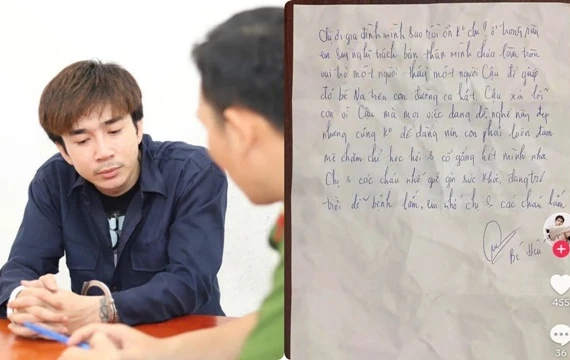 Chị ơi gia đình mình sao rồi ổn ko chị? ở trong này
em suy nghĩ trách bản thân mình chưa làm tròn
vai trò một người thầy một người Cậu để giúp
đỡ bé Na trên con đường ca hát. Cậu xin lỗi
con vì Cậu mà mọi việc dang dở, nghề này đẹp
nhưng cũng ko dễ dàng nên con phải luôn đam
mê chăm chỉ học hỏi & cố gắng hết mình nha
Chị & các cháu nhớ giữ gìn sức khỏe, đang trở
trời dễ bệnh lắm, em nhớ chị & các cháu lắm
Bé
455
36